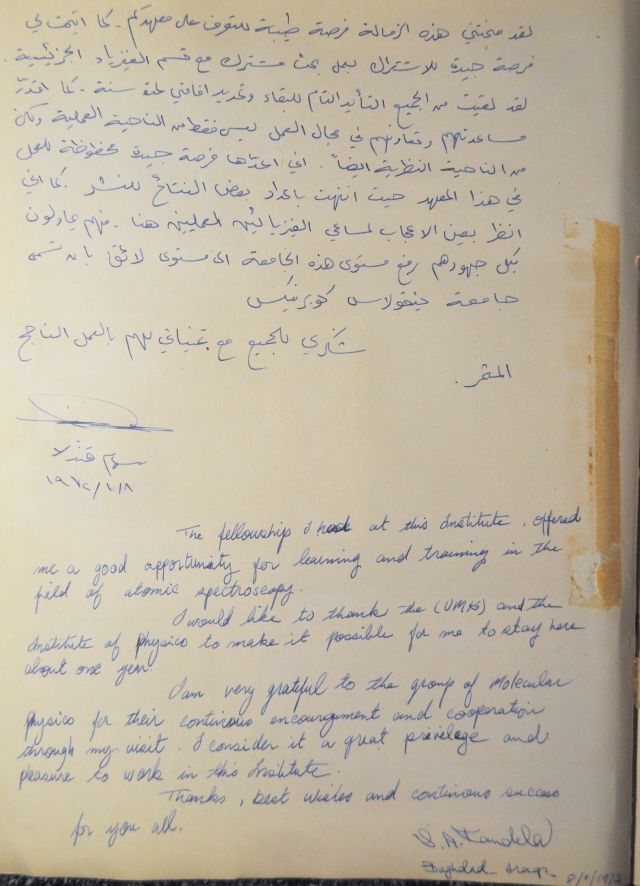 لقد منحتني هذه الزمالة فرصة طيبة للتعرف على معهدكم - كما اتيحت لي
فرصة جيدة للاشتراك بعمل بحث مشترك مع قسم الفيزياء الجزيئية.
لقد لقيت من الجميع التأييد التام للبقاء وتمديد اقامتي لمدة سنة - كما اقدّر
مساعدتهم وتعاونهم في مجال العمل ليس فقط من الناحية العملية ولكن
من الناحية النظرية ايضاً. اني اعدّها فرصة جيدة محظوظة للعمل
في هذا المعهد حيث انتهيت باعداد بعض النتائج للنشر. كما اني
انظر بعين الاعجاب لمساعي الفيزيائيين العاملين هنا - فهم يحاولون
بكل جهودهم رفع مستوى هذه الجامعة الى مستوى لائق بان تسمى
جامعة نيقولاس كوبرنيكس
شكري للجميع مع تمنياتي لهم بالعمل الناجح
المثمر.
سهام قندلا
The fellowship I had at this Institute, offered
me a good opportunity for learning and training in the
field of atomic spectroscopy.
I would like to thank the (UMK) and the
Institute of physics to make it possible for me to stay here
about one year.
I am very grateful to the group of Molecular
physics for their continous encouragement and cooperation
through my visit. I consider it a great previlege and
pleasure to work in this Institute.
Thanks, best wishes and continous success
for you all.
S. A. Kandela
Baghdad - Iraq.